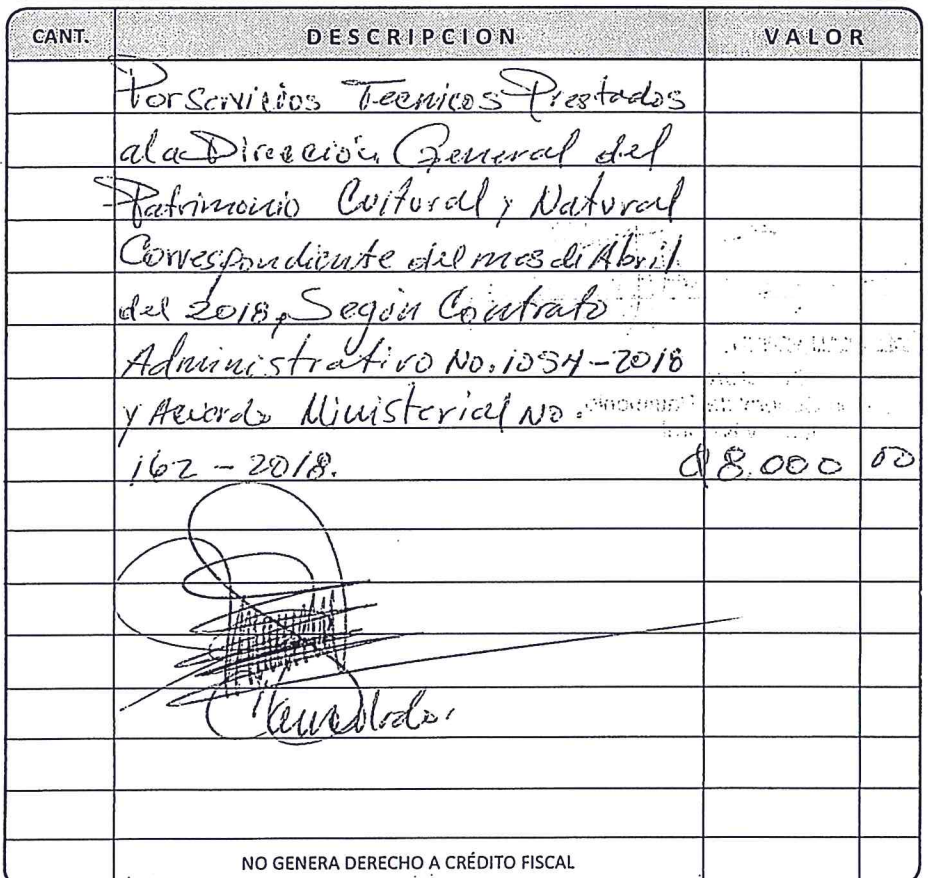 CANT. DESCRIPCION VALOR
Por Servicios Tecnicos Prestados
a la Dirección General del
Patrimonio Cultural y Natural
Correspondiente del mes de Abril
del 2018, Según Contrato
Administrativo No. 1054-2018
y Acuerdo Ministerial No.
162-2018. Q 8.000 00
Cancelado.
NO GENERA DERECHO A CRÉDITO FISCAL